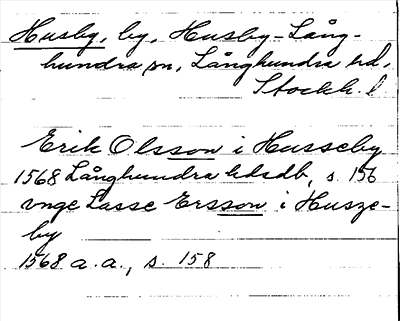 Husby, by, Husby-Lång-
hundra sn, Långhundra hd,
Stockh. l
Erik Olsson i Husseby
1568 Långhundra hdsdb, s. 156
vnge Lasse Ersson i Husze-
by
1568 a. a., s. 158